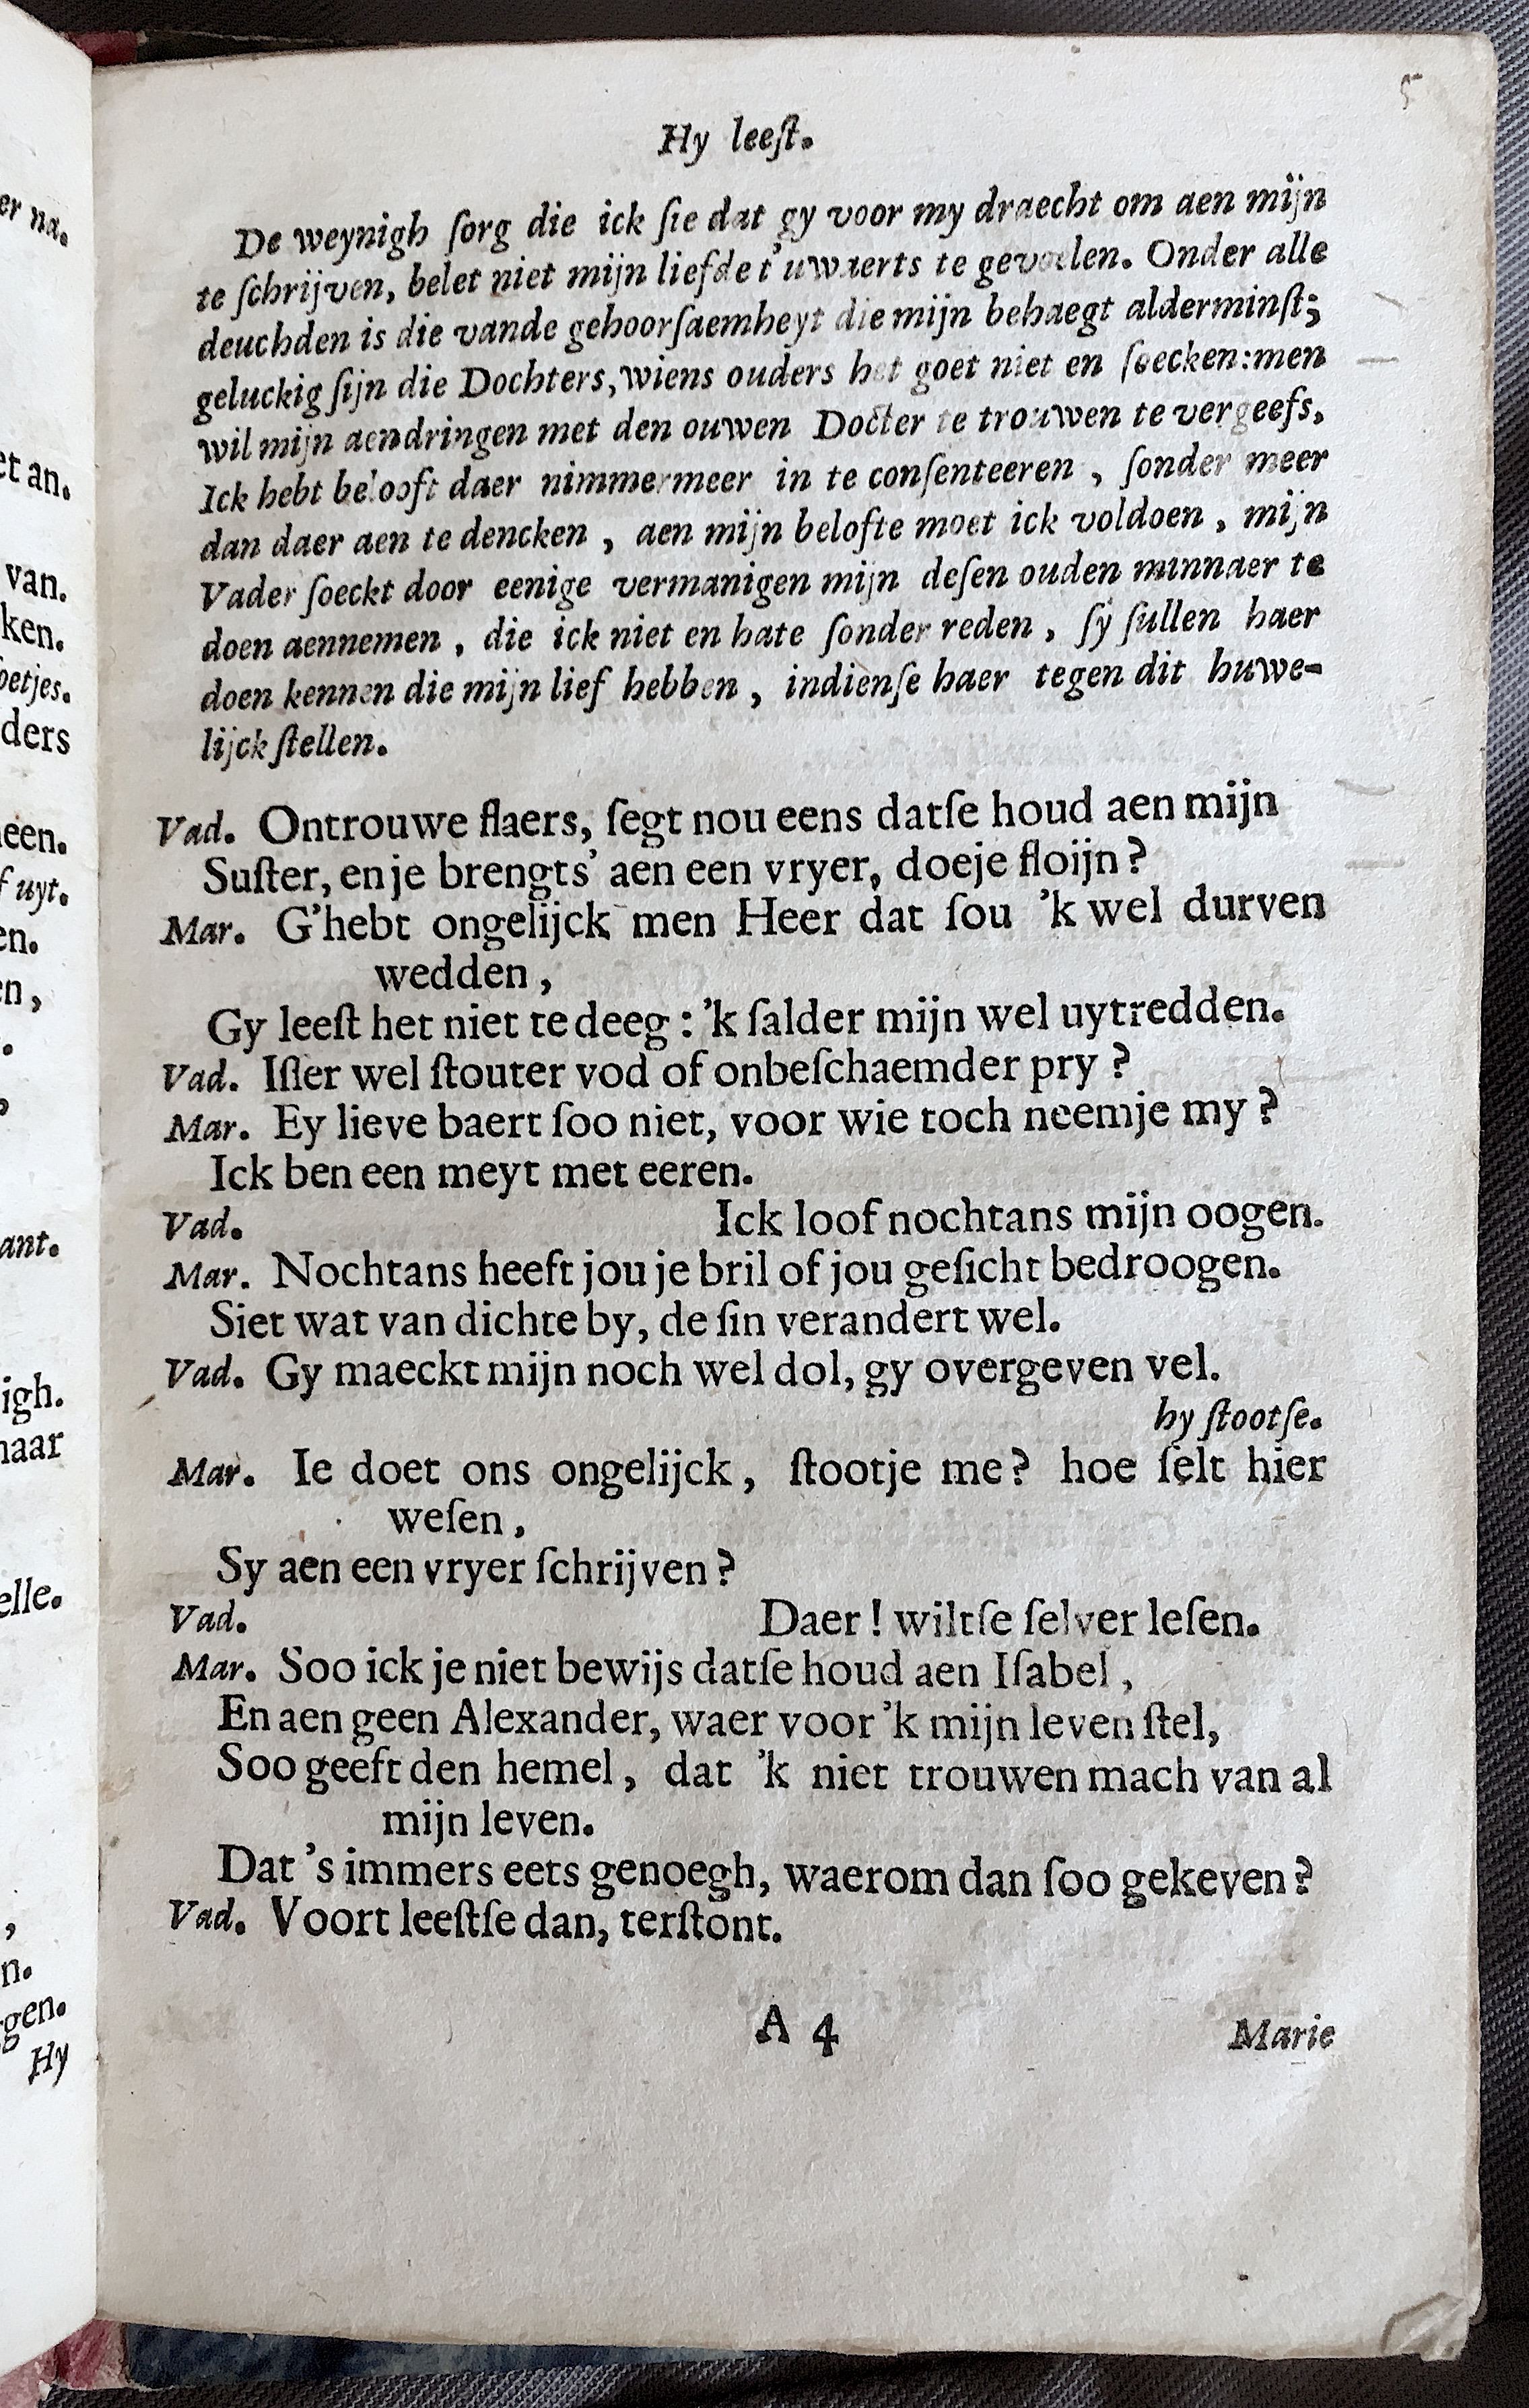 5
Hy leeſt.
De weynigh ſorg die ick ſie dat gy voor my draecht om aen mijn
te ſchrijven, belet niet mijn liefde t'uwaerts te gevoelen. Onder alle
deuchden is die vande gehoorſaemheyt die mijn behaegt alderminſt;
geluckig ſijn die Dochters, wiens ouders het goet niet en ſoecken: men
wil mijn aendringen met den ouwen Docter te trouwen te vergeefs,
Ick hebt belooft daer nimmermeer in te conſenteeren, ſonder meer
dan daer aen te dencken, aen mijn belofte moet ick voldoen, mijn
Vader ſoeckt door eenige vermanigen mijn deſen ouden minnaer te
doen aennemen, die ick niet en hate ſonder reden, ſy ſullen haer
doen kennen die mijn lief hebben, indienſe haer tegen dit huwe-
lijck ſtellen.
Vad. Ontrouwe ſlaers, ſegt nou eens datſe houd aen mijn
Suſter, en je brengts' aen een vryer, doeje ſloijn?
Mar. G'hebt ongelijck men Heer dat ſou 'k wel durven
wedden,
Gy leeſt het niet te deeg: 'k ſalder mijn wel uytredden.
Vad. Iſſer wel ſtouter vod of onbeſchaemder pry?
Mar. Ey lieve baert ſoo niet, voor wie toch neemje my?
Ick ben een meyt met eeren.
Vad. Ick loof nochtans mijn oogen.
Mar. Nochtans heeft jou je bril of jou geſicht bedroogen.
Siet wat van dichte by, de ſin verandert wel.
Vad. Gy maeckt mijn noch wel dol, gy overgeven vel.
hy ſtootſe.
Mar. Ie doet ons ongelijck, ſtootje me? hoe ſelt hier
weſen,
Sy aen een vryer ſchrijven?
Vad. Daer! wiltſe ſelver leſen.
Mar. Soo ick je niet bewijs datſe houd aen Iſabel,
En aen geen Alexander, waer voor 'k mijn leven ſtel,
Soo geeft den hemel, dat 'k niet trouwen mach van al
mijn leven.
Dat 's immers eets genoegh, waerom dan ſoo gekeven?
Vad. Voort leeſtſe dan, terſtont.
A 4
Marie
er na.
et an.
van.
ken.
oetjes.
ders
een.
f uyt.
en.
en,
ant.
igh.
naar
elle.
n.
gen.
Hy